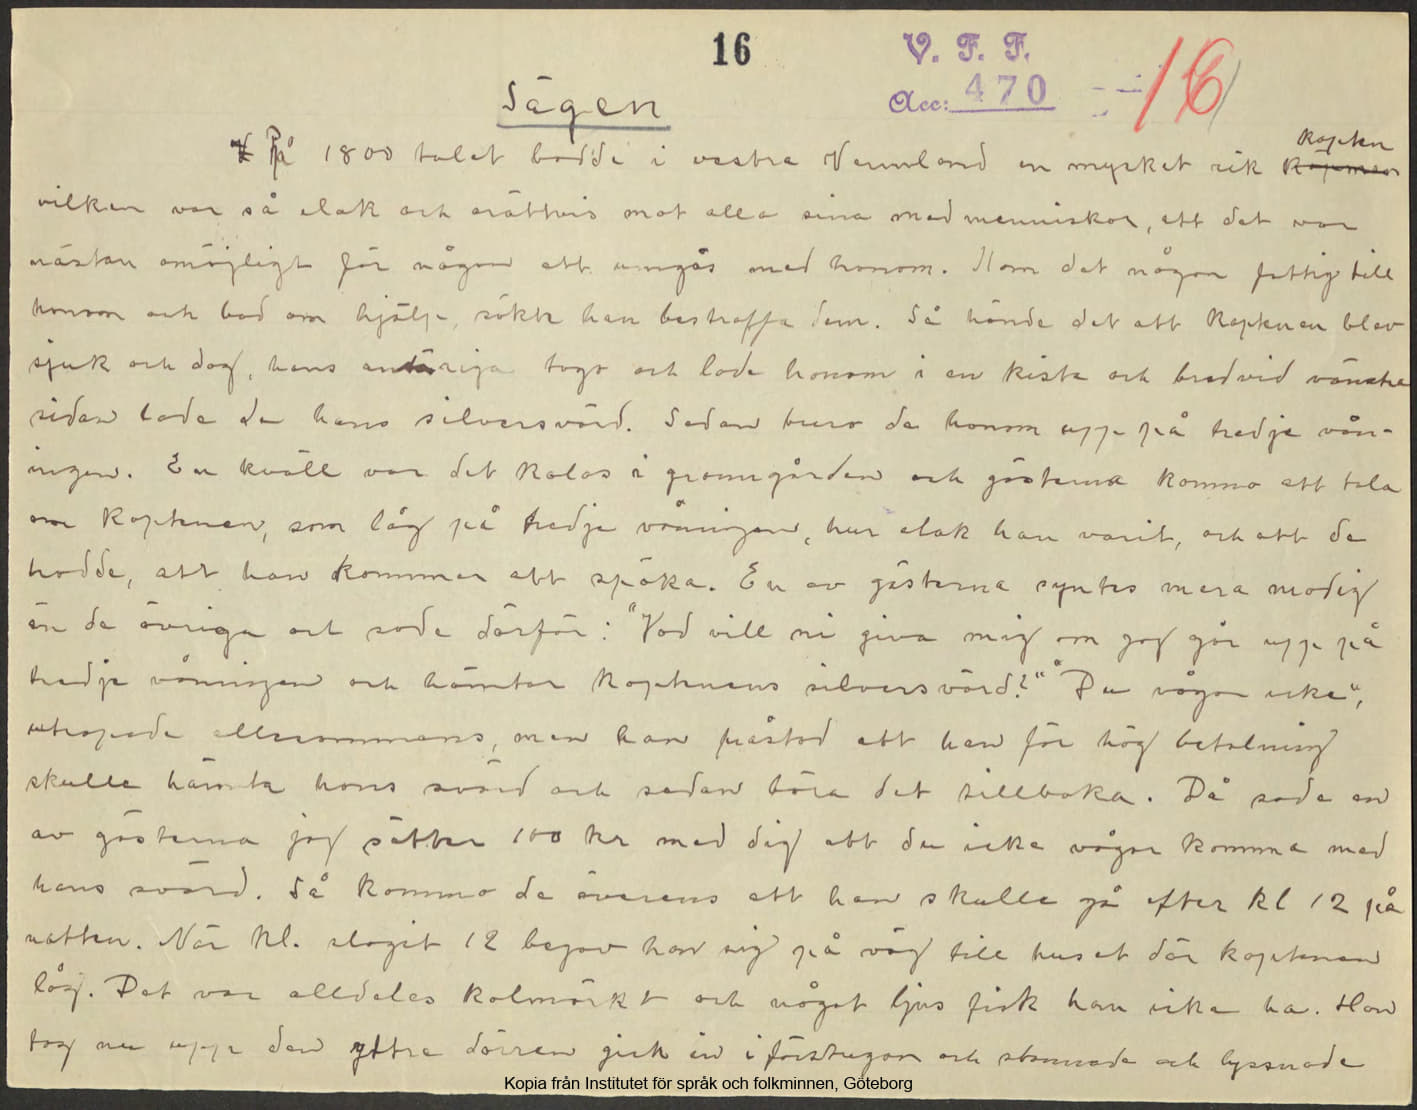 16
V. F. F.
Acc: 470
16
Sägen
På 1800 talet bodde i vestra Vermland en mycket rik Kapten
vilken var så elak och orättvis mot alla sina medmenniskor, att det var
nästan omöjligt för någon att umgås med honom. Kom det någon fattig till
honom och bad om hjälp, sökte han bestraffa dem. Så hände det att Kaptenen blev
sjuk och dog, hans togo och lade honom i en kista och bredvid vänstra
sidan lade de hans silversvärd. Sedan buro de honom upp på tredje vån-
ingen. En kväll var det kalas i granngården och gästerna kommo att tala
om Kaptenen, som låg på tredje våningen, hur elak han varit, och att de
trodde, att han kommer att spöka. En av gästerna syntes mera modig
än de övriga och sade därför: "Vad vill ni giva mig om jag går upp på
tredje våningen och hämtar Kaptenens silversvärd?" "Du vågar icke",
utropade allesammans, men han påstod att han för hög betalning
skulle hämta hans svärd och sedan bära det tillbaka. Då sade en
av gästerna jag sätter 100 kr med dig att du icke vågar komma med
hans svärd. Så kommo de överens att han skulle gå efter kl 12 på
natten. När kl. slagit 12 begav han sig på väg till huset där kaptenen
låg. Det var alldeles kolmörkt och något ljus fick han icke ha. Han
tog nu upp den yttre dörren gick in i förstugan och stannade och lyssnade
Kopia från Institutet för språk och folkminnen, Göteborg